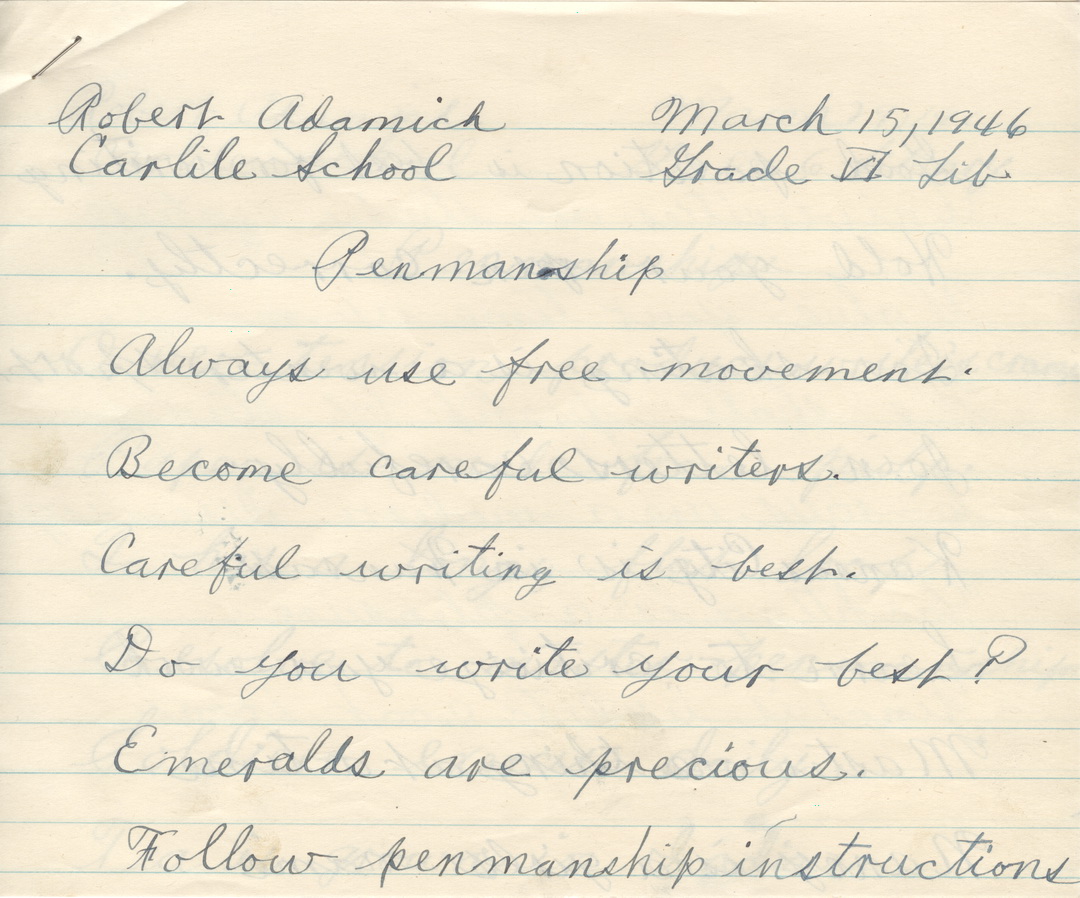 Robert Adamich March 15, 1946
Carlile School Grade VI Lib
Penmanship
Always use free movement.
Become careful writers.
Careful writing is best.
Do you write your best?
Emeralds are precious.
Follow penmanship instructions